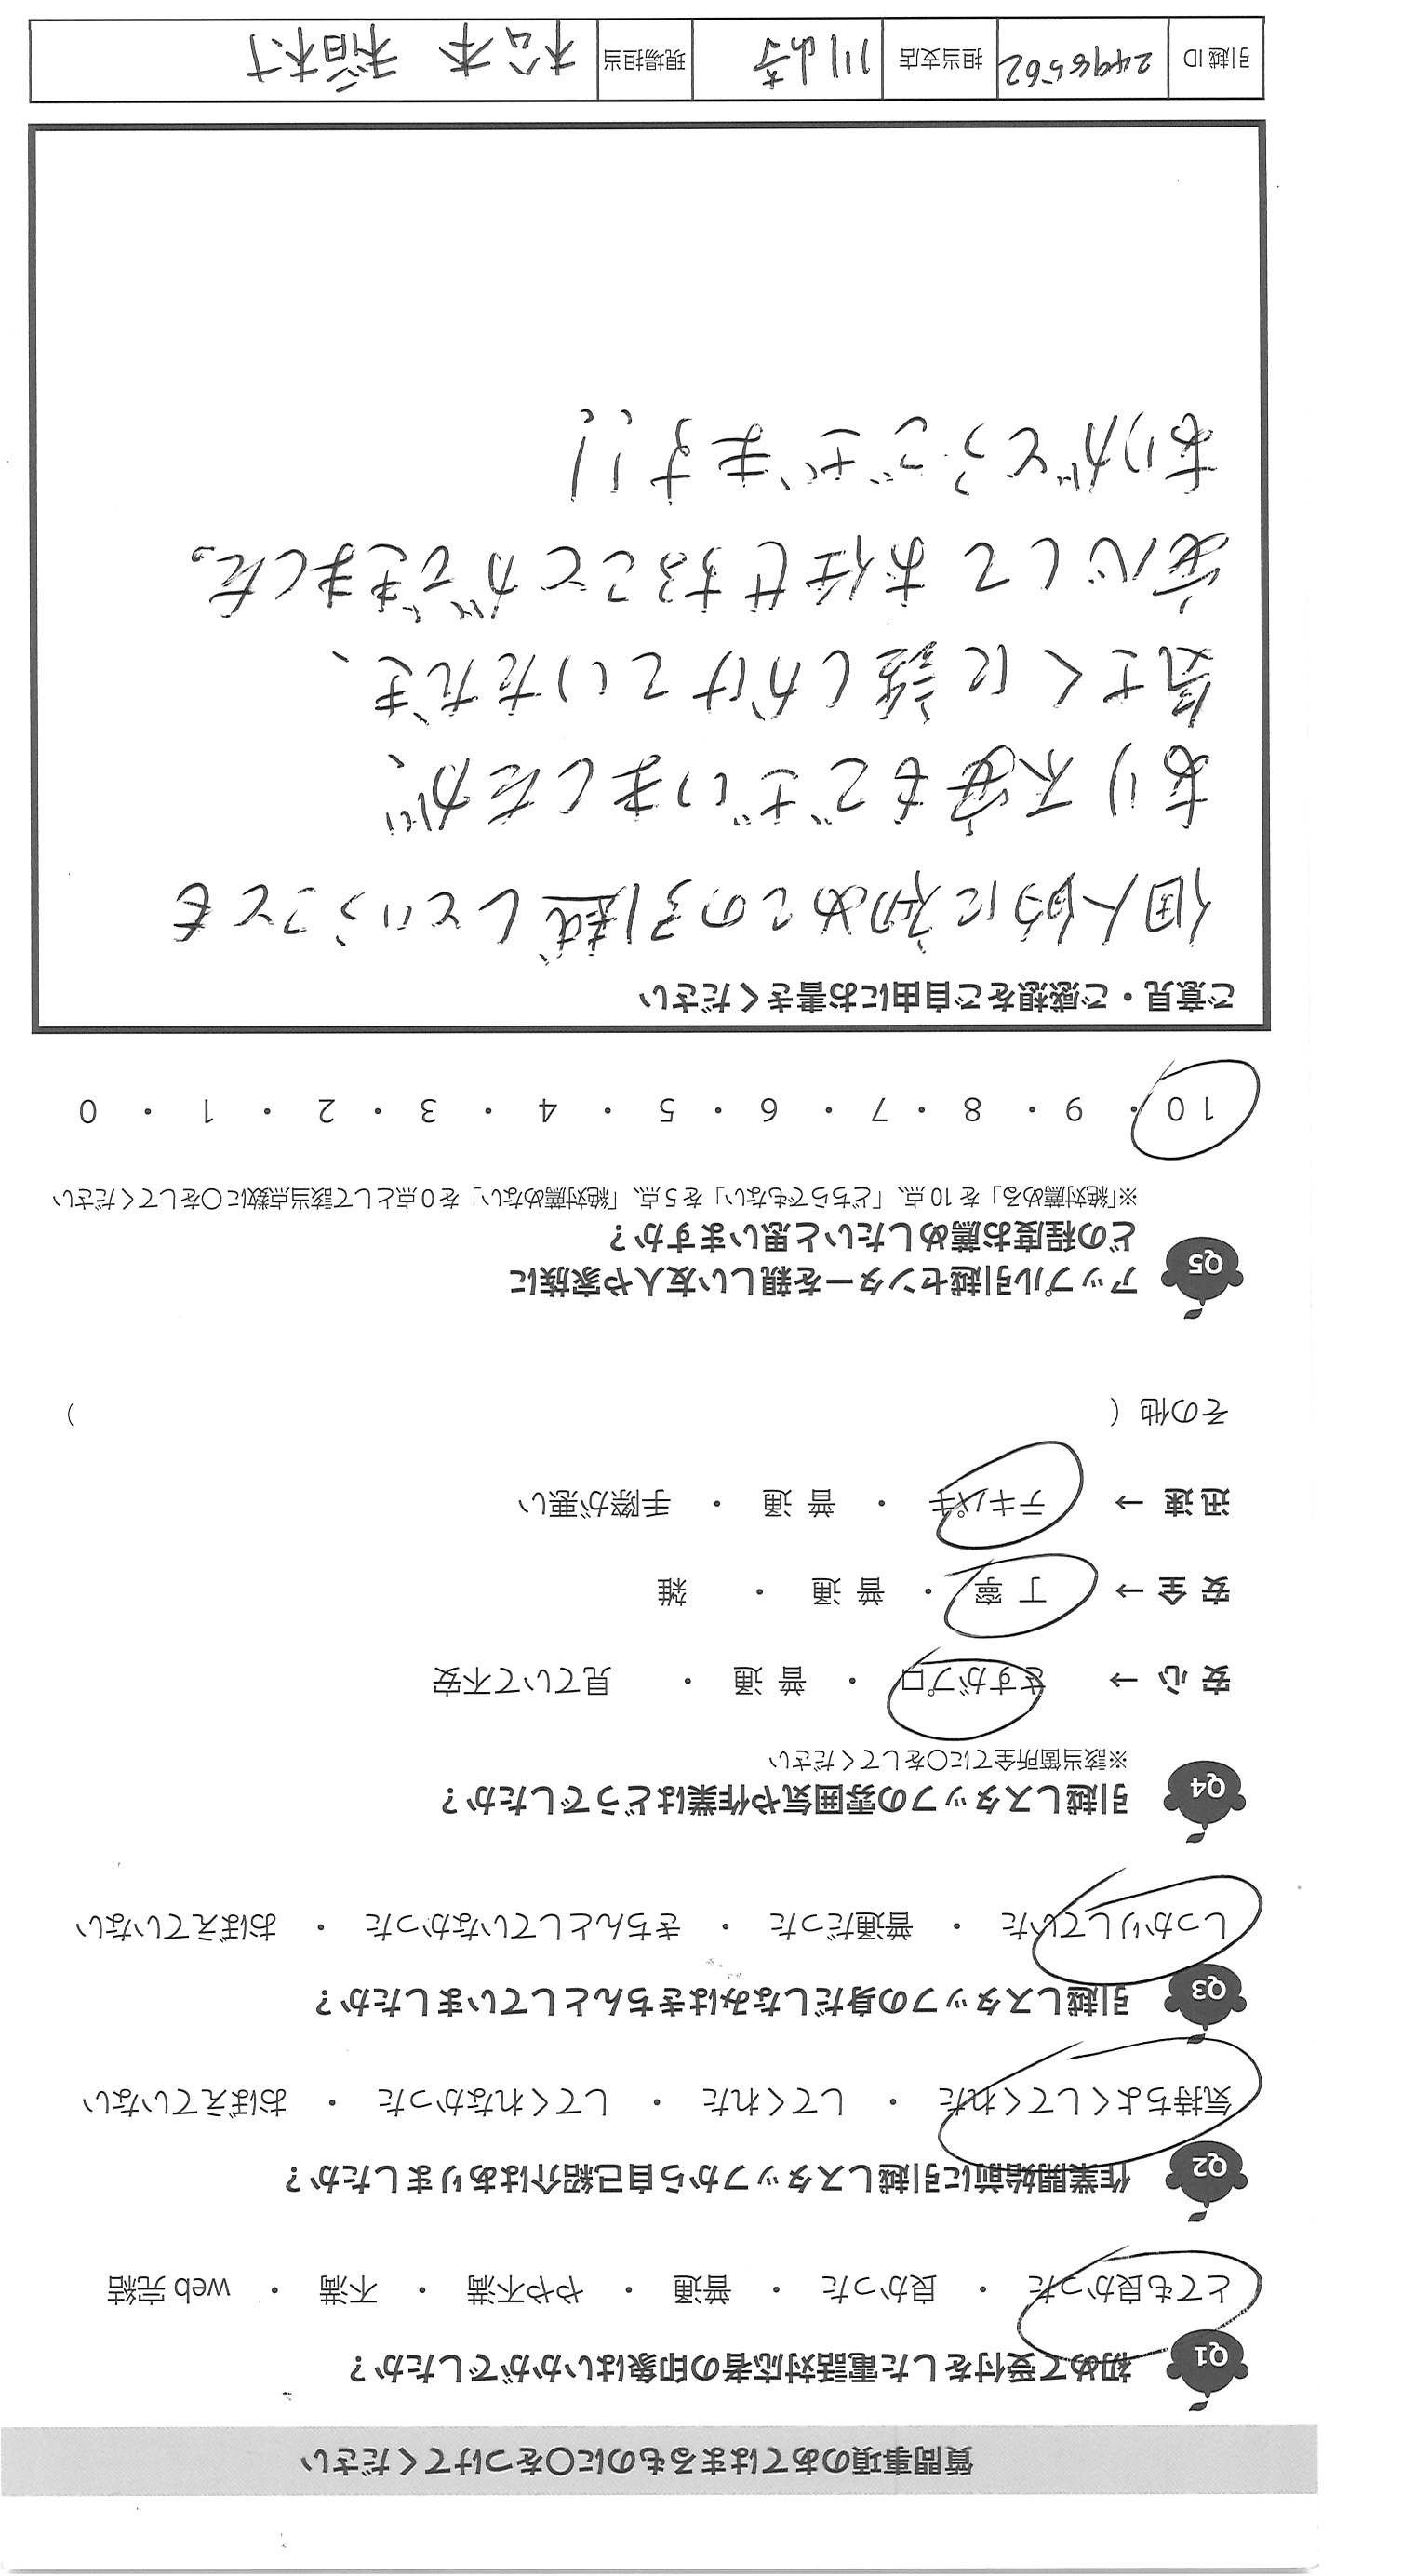 質問事項のあてはまるものに〇をつけてください
Q1 初めて受付をした電話対応者の印象はいかがでしたか？
とても良かった ・ 良かった ・ 普通 ・ やや不満 ・ 不満 ・ web 完結
Q2 作業開始前に引越しスタッフから自己紹介はありましたか？
気持ちよくしてくれた ・ してくれた ・ してくれなかった ・ おぼえていない
Q3 引越しスタッフの身だしなみはきちんとしていましたか？
しっかりしていた ・ 普通だった ・ きちんとしていなかった ・ おぼえていない
Q4 引越しスタッフの雰囲気や作業はどうでしたか？
※該当箇所全てに〇をしてください
安 心 → さすがプロ ・ 普 通 ・ 見ていて不安
安 全 → 丁 寧 ・ 普 通 ・ 雑
迅 速 → テキパキ ・ 普 通 ・ 手際が悪い
その他（ ）
Q5 アップル引越センターを親しい友人や家族に
どの程度お薦めしたいと思いますか？
※「絶対薦める」を 10 点、「どちらでもない」を 5 点、「絶対薦めない」を 0 点として該当点数に〇をしてください
10 ・ 9 ・ 8 ・ 7 ・ 6 ・ 5 ・ 4 ・ 3 ・ 2 ・ 1 ・ 0
ご意見・ご感想をご自由にお書きください
個人的に初めての引越しということも
あり不安もございましたが、
気さくに話しかけていただき、
安心してお任せすることができました。
ありがとうござます!!
引越 ID 2498562 担当支店 川崎 現場担当 松本 稲村